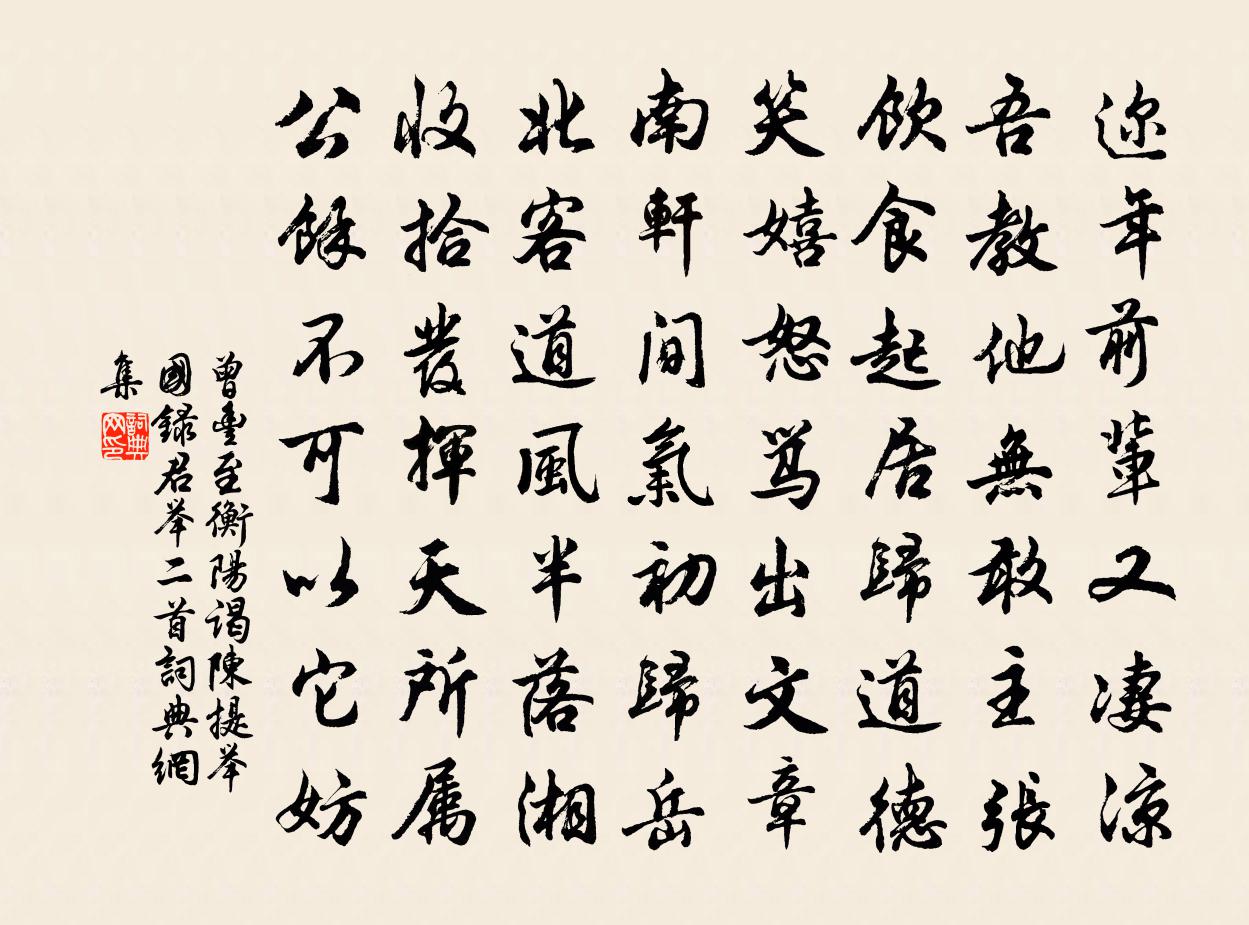 迩年前輩又凄涼
吾教他無敢主張
飲食起居歸道德
笑嬉怒罵出文章
南軒間氣初歸岳
北客道風半落湘
收拾發揮天所属
公餘不可以它妨
曾豊至衡陽謁陳提举
國録君举二首詞典網
集
詞典网印